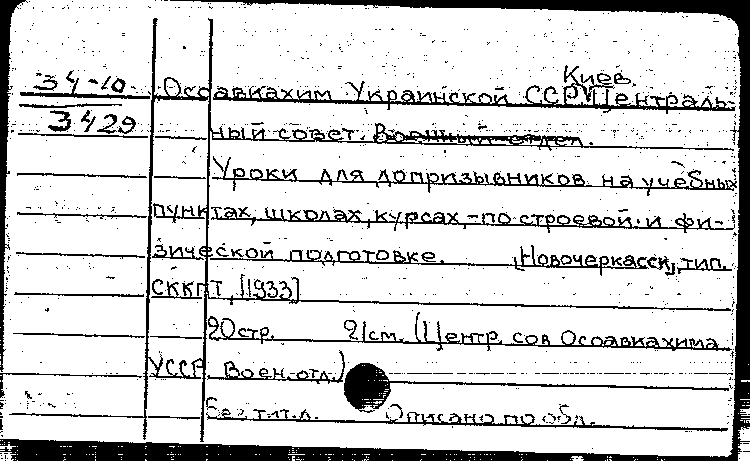 Киев.
34-10 Осоавиахим Украинской ССР Централь-
3429 ный совет. Военный отдел.
Уроки для допризывников на учебных
пунктах, школах, курсах,-по строевой и фи-
зической подготовке. Новочеркасск, тип.
СККПТ, [1933]
20стр. 21см. (Центр. сов Осоавиахима
УССР Воен.отд.)
Без тит.л. Описано по обл.